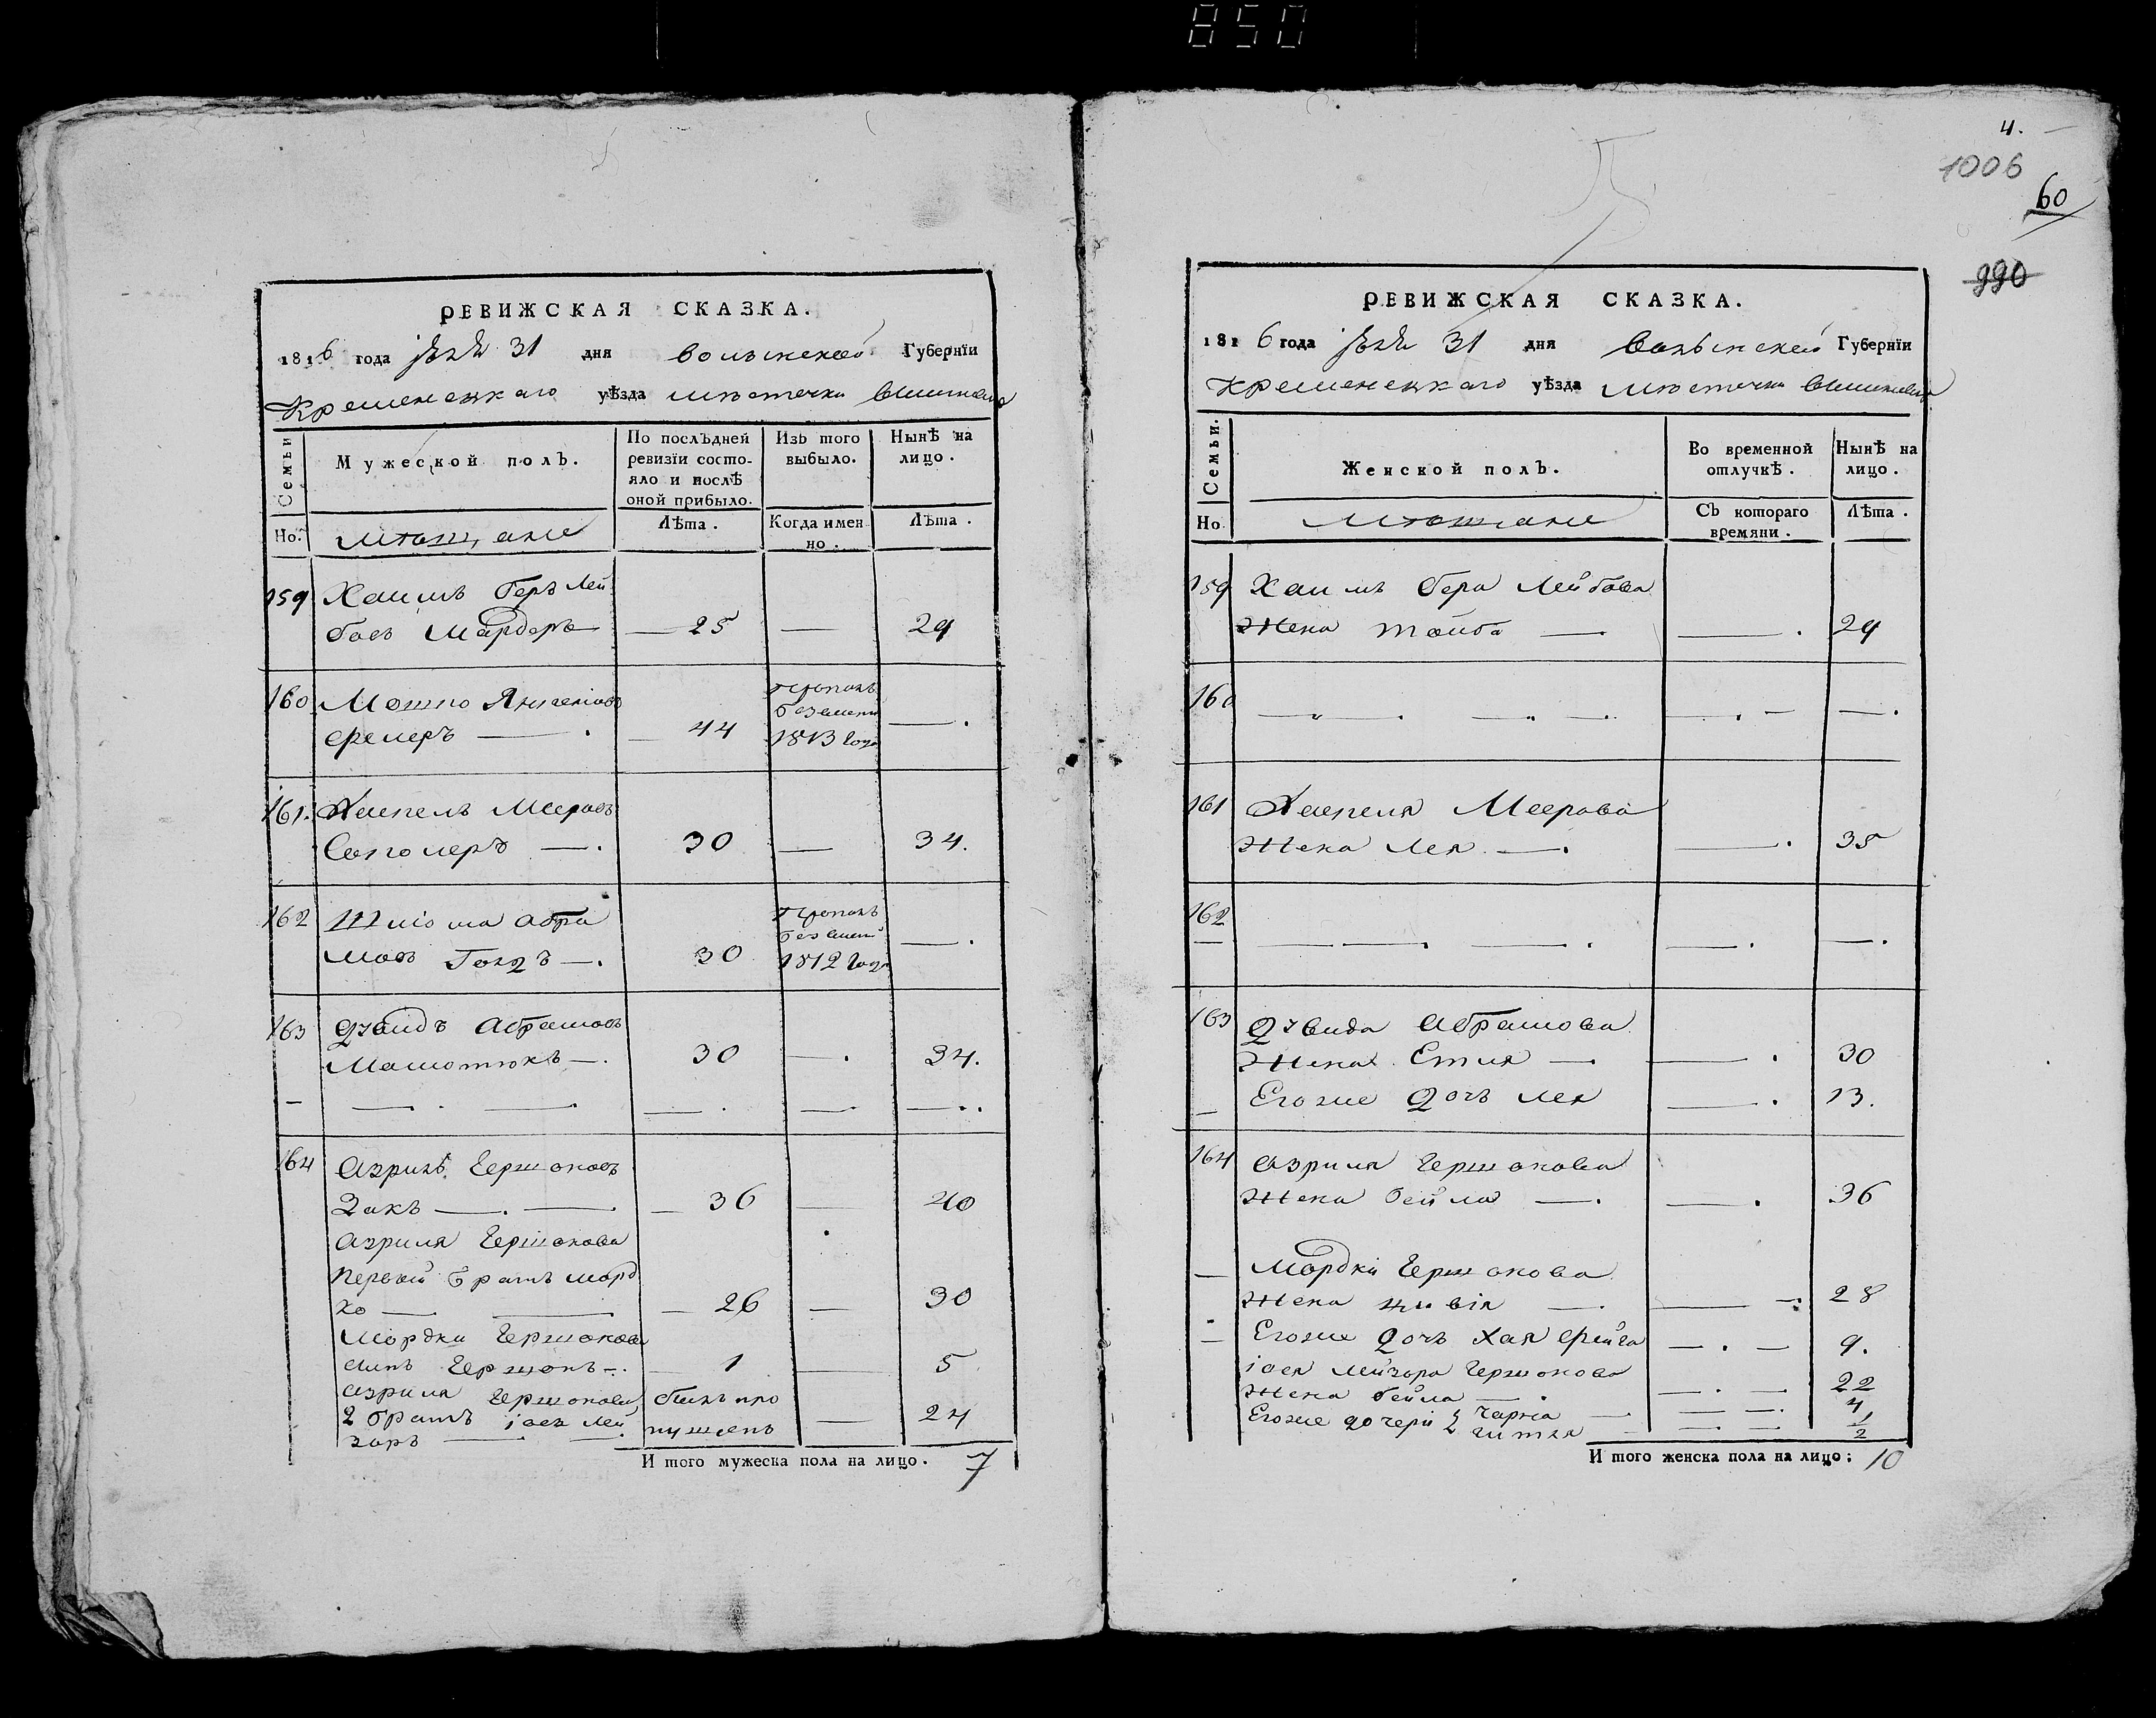 850
РЕВИЖСКАЯ СКАЗКА.
1816 года 31 дня Волынской Губернїи
Кременецкаго уѣзда мѣстечка Вишневца
Семьи
Мужеской полъ.
По послѣдней ревизїи состояло и послѣ оной прибыло.
Изъ того выбыло.
Нынѣ на лицо.
Но.
мѣщане
Лѣта.
Когда именно.
Лѣта.
159 Хаимъ Беръ Лей
бовъ Мардеръ — 25 — 29
160 Мошко Янкеліовъ
44 1813 года —.
161. Хаскель Мееровъ
30 — 34.
162 Шліома Абра
мовъ Голдъ —. 30 1812 года —.
163 Дувидъ Абрамовъ
30 —. 34.
164 Азриль Гершоновъ
Закъ —. — 36 — 40
Азриля Гершонова
первый братъ Морд
ко — — 26 — 30
Мордки Гершонова
сынъ Гершонъ —. 1 — 5
Азриля Гершонова былъ про
2 братъ Іоел Лей пущенъ — 24
зоръ
И того мужеска пола на лицо. 7
4.
1006
60
990
РЕВИЖСКАЯ СКАЗКА.
1816 года 31 дня Волынской Губернїи
Кременецкаго уѣзда мѣстечка Вишневца
Семьи.
Женской полъ.
Во временной отлучкѣ.
Нынѣ на лицо.
Но
мѣщане
Съ котораго времяни.
Лѣта.
159 Хаимъ Бера Лейбова
жена Тойба — —. 29
160 — —. — —. —. — —.
161 Хаскеля Меерова
жена Лея —. —. 35
162 — —. —. —. —.
163 Дувида Абрамова
жена Етля — —. 30
Егоже дочь Лея —. 13.
164 Азриля Гершонова
жена Бейла —. —. 36
Мордки Гершонова
жена Цивія — —. 28
Егоже дочь Хая Фейга —.— 9.
Іоел Лейзора Гершонова
жена Бейла —. —.—. 22
Егоже дочери 2 Чарна — 4
Гитля 1/2
И того женска пола на лицо: 10